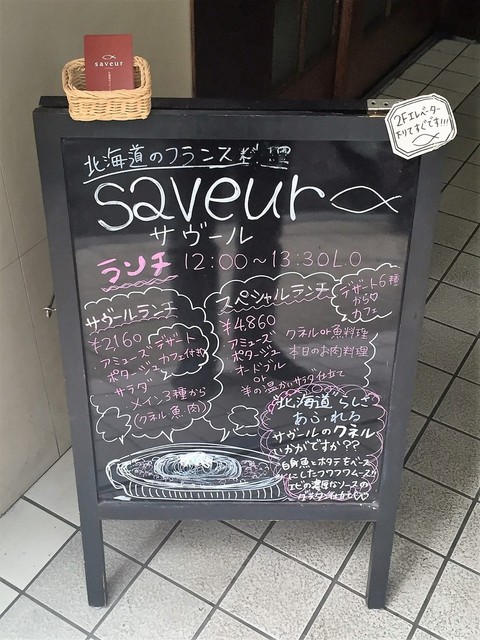 saveur
2Fエレベーター
下りてすぐです!!!
北海道のフランス料理
saveur
サヴール
ランチ 12:00~13:30L.O
サヴールランチ
¥2160
デザート
カフェ付き
・アミューズ
・ポタージュ
・サラダ
・メイン3種から
(クネル・魚・肉)
スペシャルランチ
デザート6種
から♡
カフェ
¥4860
・アミューズ
・ポタージュ
・オードブル
or
羊の温かいサラダ仕立て
・クネルor魚料理
・本日のお肉料理
北海道らしさ
あふれる
サヴールのクネル
いかがですか??
白身魚とホタテをベース
にしたフワフワムースが
エビの濃厚なソースの
グラタン仕立て♡♡